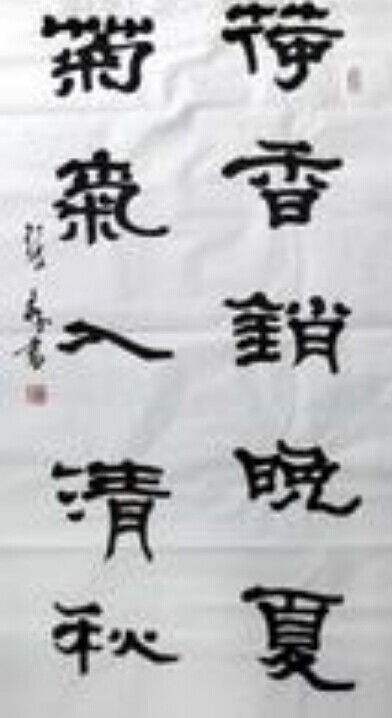 荷香銷晚夏
菊氣入清秋